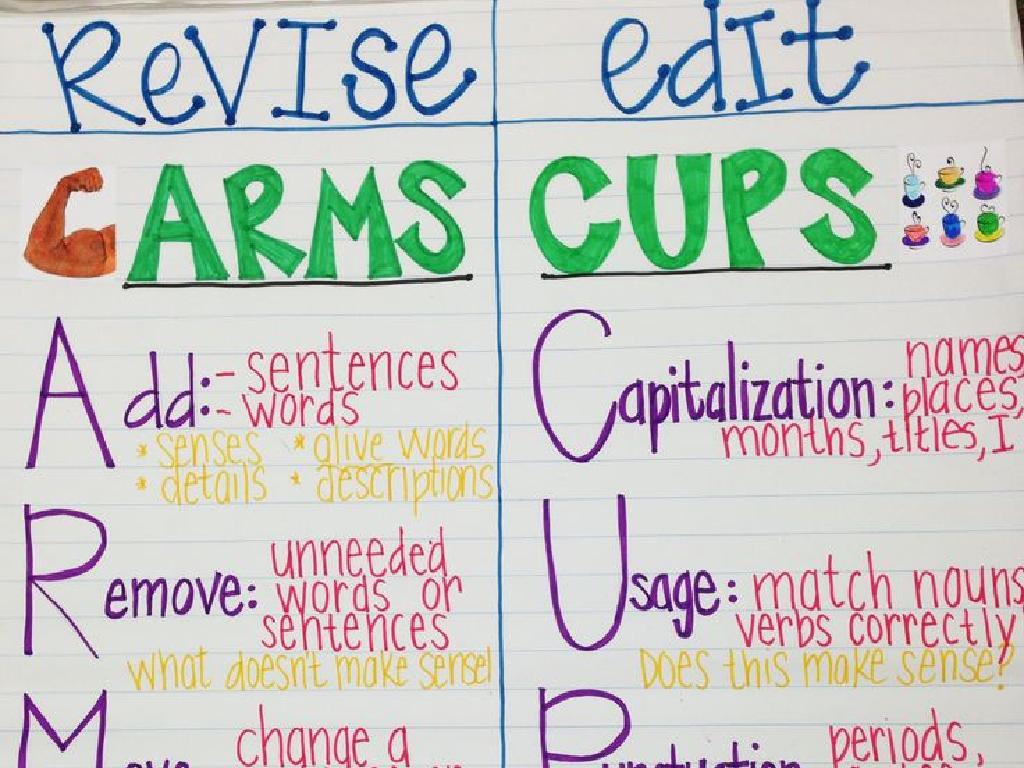 Revise
edit
ARMS
CUPS
Add: - sentences
- words
* senses * alive words
* details * descriptions
Remove: unneeded
words or
sentences
what doesn't make sense!
change a
Capitalization: names
places,
months, titles, I
Usage: match nouns
verbs correctly
Does this make sense?
Punctuation periods,